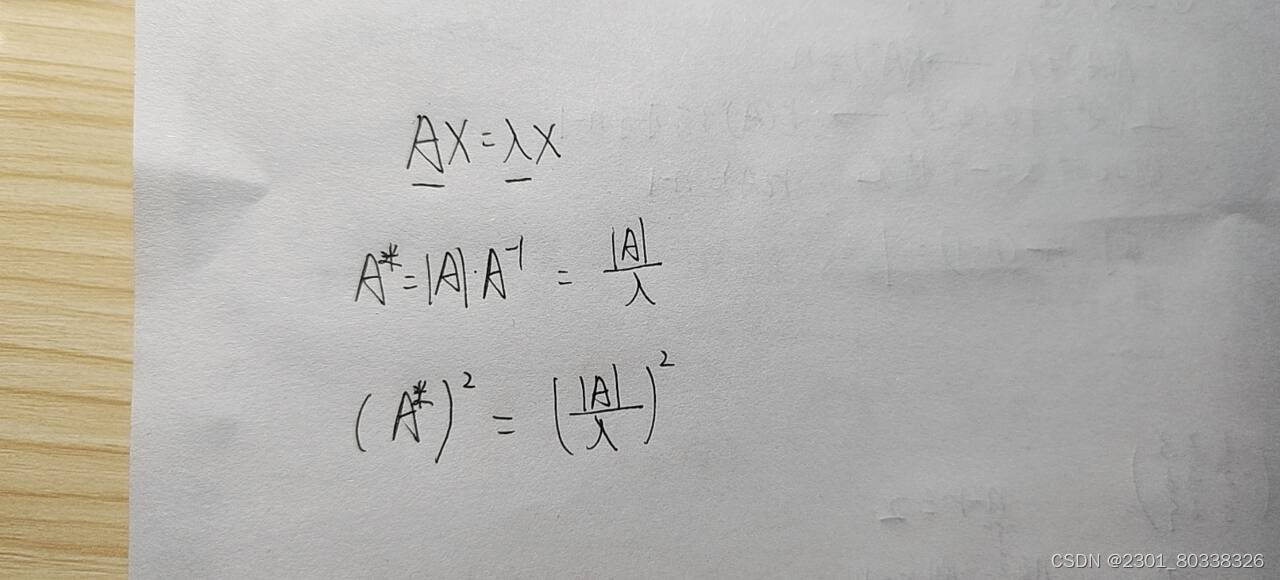 AX=λX
A*=|A|·A⁻¹ = |A|/λ
(A*)² = (|A|/λ)²
CSDN @2301_80338326